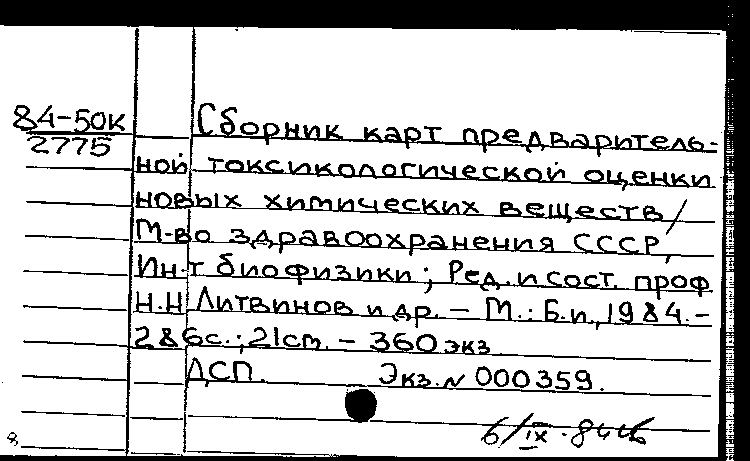 84-50К
2775
Сборник карт предваритель-
ной токсикологической оценки
новых химических веществ/
М-во здравоохранения СССР,
Ин-т биофизики; Ред. и сост. проф
Н.Н Литвинов и др. – М.: Б.и., 1984. –
286с.; 21см. – 360 экз
ДСП. Экз. N 000359.
6/IX-84